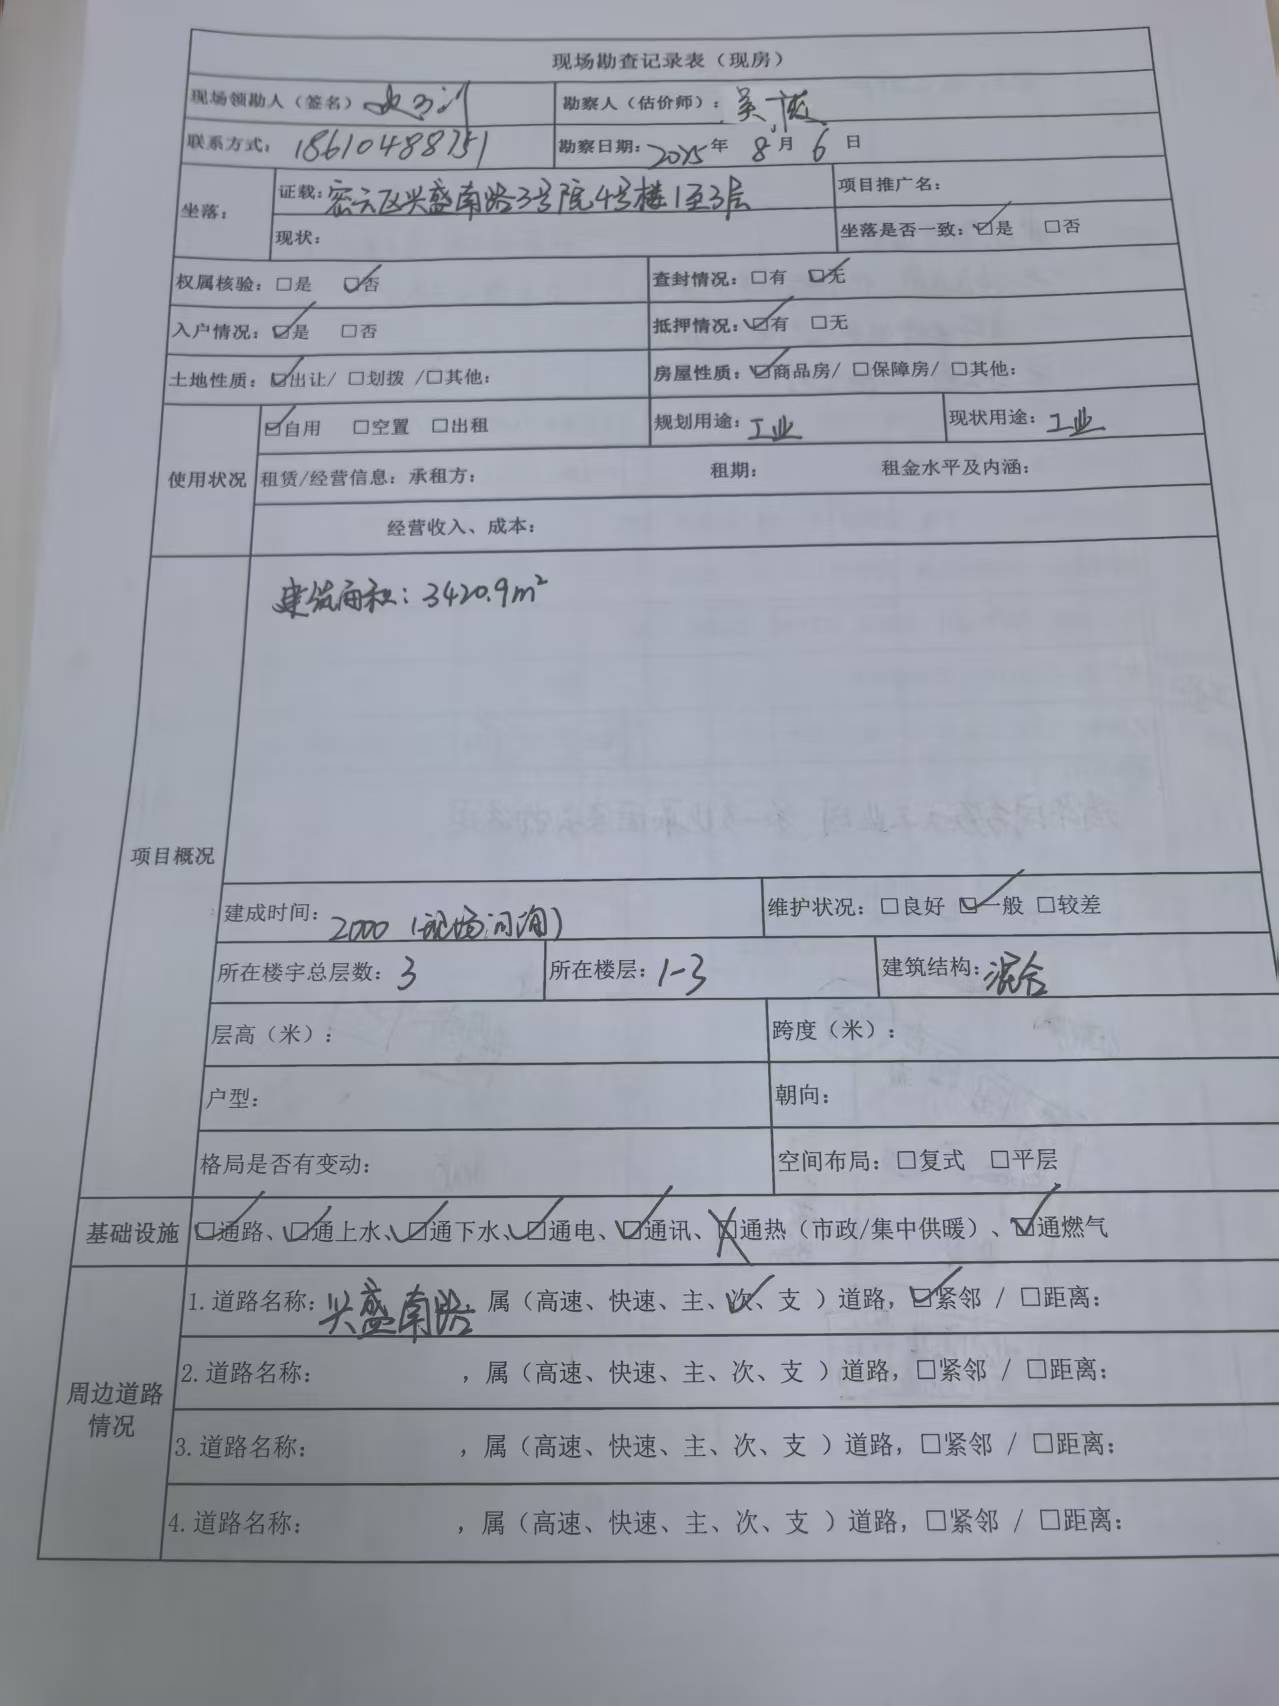 现场勘查记录表（现房）
现场领勘人（签名） 勘察人（估价师）：吴薇
联系方式：18610488751 勘察日期：2025年 8月 6日
坐落： 证载：密云区兴盛南路3号院4号楼1至3层 项目推广名：
现状： 坐落是否一致：☑是 □否
权属核验：□是 ☑否 查封情况：□有 ☑无
入户情况：☑是 □否 抵押情况：☑有 □无
土地性质：☑出让/ □划拨 /□其他： 房屋性质：☑商品房/ □保障房/ □其他：
使用状况 ☑自用 □空置 □出租 规划用途：工业 现状用途：工业
租赁/经营信息：承租方： 租期： 租金水平及内涵：
经营收入、成本：
项目概况 建筑面积：3420.9m²
建成时间：2000（现场问询） 维护状况：□良好 ☑一般 □较差
所在楼宇总层数：3 所在楼层：1-3 建筑结构：混合
层高（米）： 跨度（米）：
户型： 朝向：
格局是否有变动： 空间布局：□复式 □平层
基础设施 ☑通路、☑通上水、☑通下水、☑通电、☑通讯、☒通热（市政/集中供暖）、☑通燃气
周边道路情况 1.道路名称：兴盛南路，属（高速、快速、主、次✓、支 ）道路，☑紧邻 / □距离：
2.道路名称： ，属（高速、快速、主、次、支 ）道路，□紧邻 / □距离：
3.道路名称： ，属（高速、快速、主、次、支 ）道路，□紧邻 / □距离：
4.道路名称： ，属（高速、快速、主、次、支 ）道路，□紧邻 / □距离：